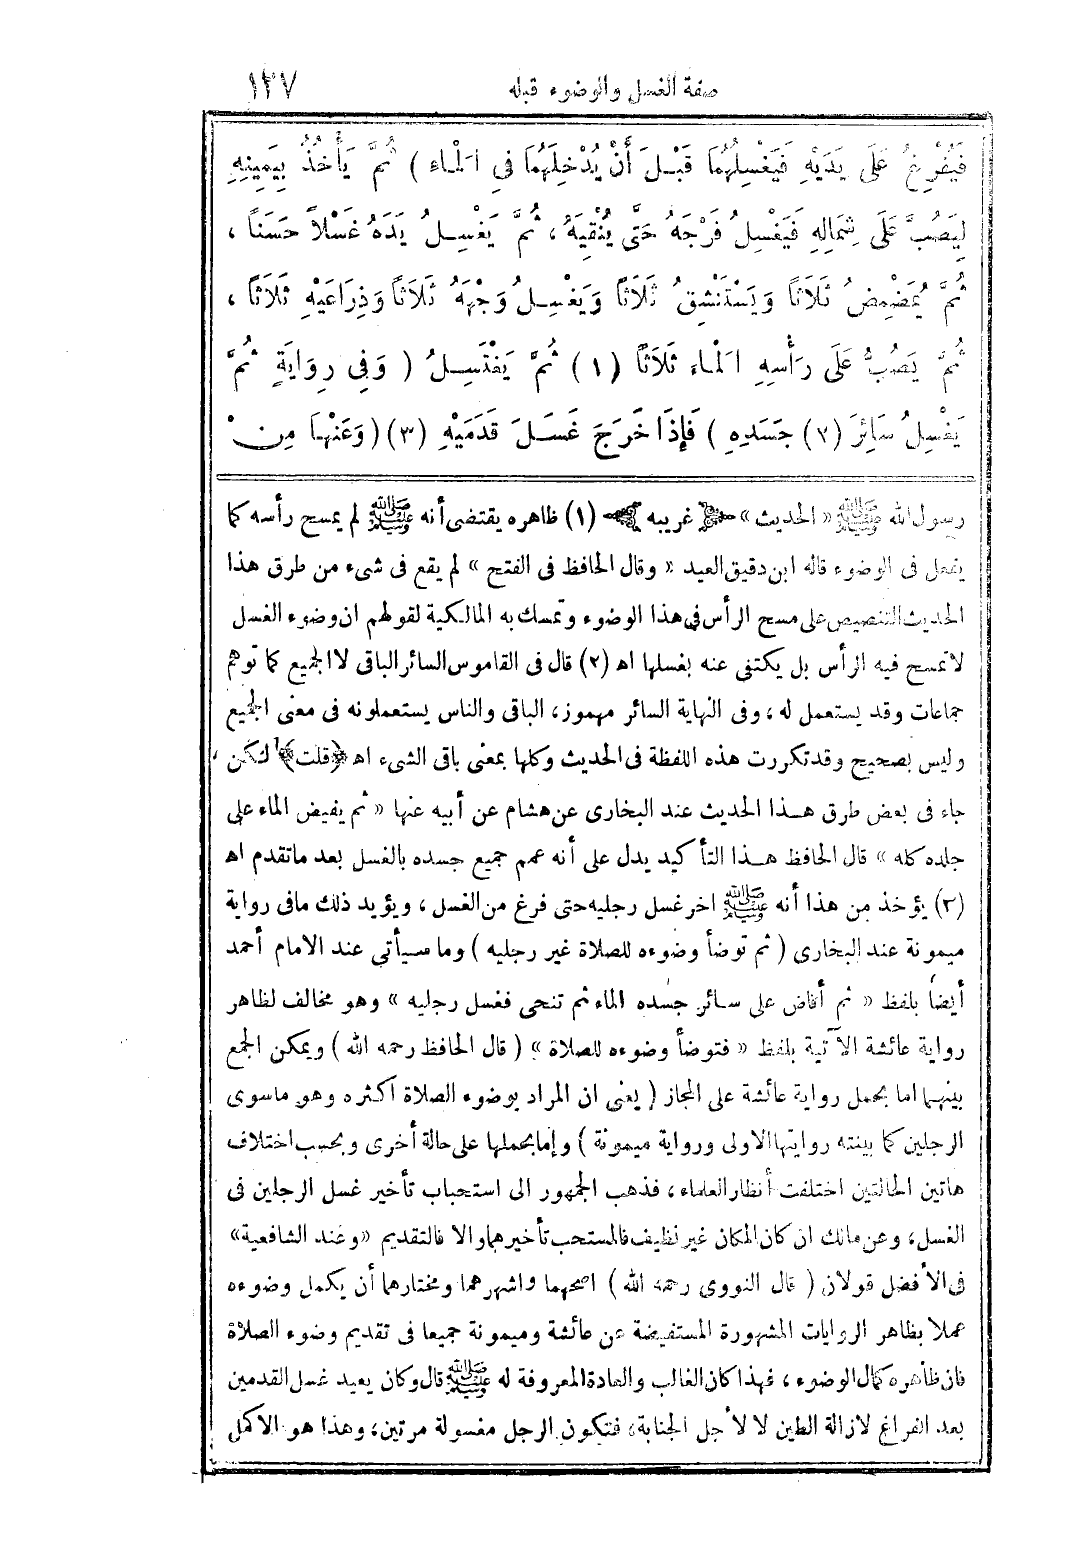 صفة الغسل والوضوء قبله ١٢٧
فَيُفْرِغُ عَلَى يَدَيْهِ فَيَغْسِلُهُمَا قَبْلَ أَنْ يُدْخِلَهُمَا فِي الْمَاءِ ) ثُمَّ يَأْخُذُ بِيَمِينِهِ
لِيَصُبَّ عَلَى شِمَالِهِ فَيَغْسِلُ فَرْجَهُ حَتَّى يُنْقِيَهُ ، ثُمَّ يَغْسِلُ يَدَهُ غَسْلاً حَسَنًا ،
ثُمَّ يُمَضْمِضُ ثَلَاثًا وَيَسْتَنْشِقُ ثَلَاثًا وَيَغْسِلُ وَجْهَهُ ثَلَاثًا وَذِرَاعَيْهِ ثَلَاثًا ،
ثُمَّ يَصُبُّ عَلَى رَأْسِهِ الْمَاءَ ثَلَاثًا (١) ثُمَّ يَغْتَسِلُ ( وَفِي رِوَايَةٍ ثُمَّ
يَغْسِلُ سَائِرَ (٢) جَسَدِهِ ) فَإِذَا خَرَجَ غَسَلَ قَدَمَيْهِ (٣) (وَعَنْهَا مِنْ
رسول الله ﷺ « الحديث » ﴿ غريبه ﴾ (١) ظاهره يقتضى أنه ﷺ لم يمسح رأسه كما
يفعل فى الوضوء قاله ابن دقيق العيد « وقال الحافظ فى الفتح » لم يقع فى شىء من طرق هذا
الحديث التنصيص على مسح الرأس فى هذا الوضوء وتمسك به المالكية لقولهم ان وضوء الغسل
لا تمسح فيه الرأس بل يكتفى عنه بغسلها اه (٢) قال فى القاموس السائر الباقى لا الجميع كما توهم
جماعات وقد يستعمل له ، وفى النهاية السائر مهموز، الباقى والناس يستعملونه فى معنى الجميع
وليس بصحيح وقد تكررت هذه اللفظة فى الحديث وكلها بمعنى باقى الشىء اه ﴿ قلت ﴾ لكن
جاء فى بعض طرق هذا الحديث عند البخارى عن هشام عن أبيه عنها « ثم يفيض الماء على
جلده كله » قال الحافظ هذا التأكيد يدل على أنه عمم جميع جسده بالغسل بعد ما تقدم اه
(٣) يؤخذ من هذا أنه ﷺ اخر غسل رجليه حتى فرغ من الغسل ، ويؤيد ذلك ما فى رواية
ميمونة عند البخارى ( ثم توضأ وضوءه للصلاة غير رجليه ) وما سيأتى عند الامام أحمد
أيضاً بلفظ « ثم أفاض على سائر جسده الماء ثم تنحى فغسل رجليه » وهو مخالف لظاهر
رواية عائشة الآتية بلفظ « فتوضأ وضوءه للصلاة » ( قال الحافظ رحمه الله ) ويمكن الجمع
بينهما اما بحمل رواية عائشة على المجاز ( يعنى ان المراد بوضوء الصلاة اكثره وهو ما سوى
الرجلين كما بينته روايتها الاولى ورواية ميمونة ) وإما بحملها على حالة أخرى وبحسب اختلاف
هاتين الحالتين اختلفت أنظار العلماء ، فذهب الجمهور الى استحباب تأخير غسل الرجلين فى
الغسل، وعن مالك ان كان المكان غير نظيف فالمستحب تأخيرهما والا فالتقديم «وعند الشافعية»
فى الأفضل قولان ( قال النووى رحمه الله ) اصحهما واشهرهما ومختارهما أن يكمل وضوءه
عملا بظاهر الروايات المشهورة المستفيضة عن عائشة وميمونة جميعا فى تقديم وضوء الصلاة
فان ظاهره كمال الوضوء ، فهذا كان الغالب والعادة المعروفة له ﷺ قال وكان يعيد غسل القدمين
بعد الفراغ لازالة الطين لا لأجل الجنابة، فتكون الرجل مغسولة مرتين، وهذا هو الاكمل